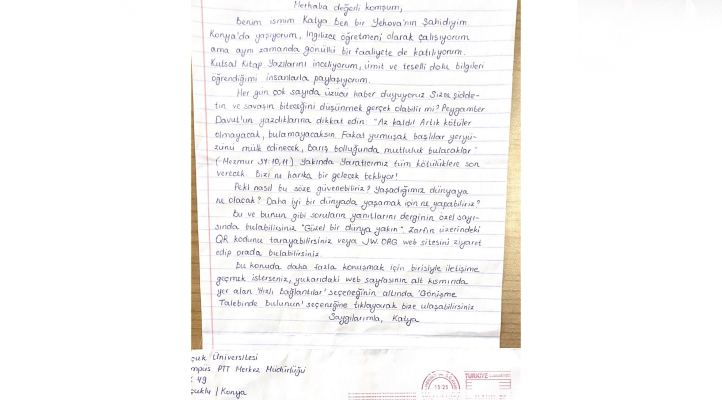 Merhaba değerli komşum,
Benim ismim Katya Ben bir Yehova'nın Şahidiyim.
Konya'da yaşıyorum, İngilizce öğretmeni olarak çalışıyorum
ama aynı zamanda gönüllü bir faaliyete de katılıyorum.
Kutsal Kitap Yazılarını inceliyorum, ümit ve teselli dolu bilgileri
öğrendiğimi insanlarla paylaşıyorum.
Her gün çok sayıda üzücü haber duyuyoruz. Sizce şidde-
tin ve savaşın biteceğini düşünmek gerçek olabilir mi? Peygamber
Davut'un yazdıklarına dikkat edin: "Az kaldı! Artık kötüler
olmayacak, bulamayacaksın. Fakat yumuşak başlılar yeryü-
zünü mülk edinecek, Barış bolluğunda mutluluk bulacaklar"
(Mezmur 37:10,11) Yakında Yaratıcımız tüm kötülüklere son
verecek. Bizi ne harika bir gelecek bekliyor!
Peki nasıl bu söze güvenebiliriz? Yaşadığımız dünyaya
ne olacak? Daha iyi bir dünyada yaşamak için ne yapabiliriz?
Bu ve bunun gibi soruların yanıtlarını derginin özel sayı-
sında bulabilirsiniz "Güzel bir dünya yakın". Zarfın üzerindeki
QR kodunu tarayabilirsiniz veya JW.ORG web sitesini ziyaret
edip orada bulabilirsiniz.
Bu konuda daha fazla konuşmak için birisiyle iletişime
geçmek isterseniz, yukarıdaki web sayfasının alt kısmında
yer alan 'Hızlı Bağlantılar' seçeneğinin altında 'Görüşme
Talebinde Bulunun' seçeneğine tıklayarak bize ulaşabilirsiniz
Saygılarımla, Katya
çuk Üniversitesi
mpüs PTT Merkez Müdürlüğü
: 49
çuklu / Konya
TÜRKİYE